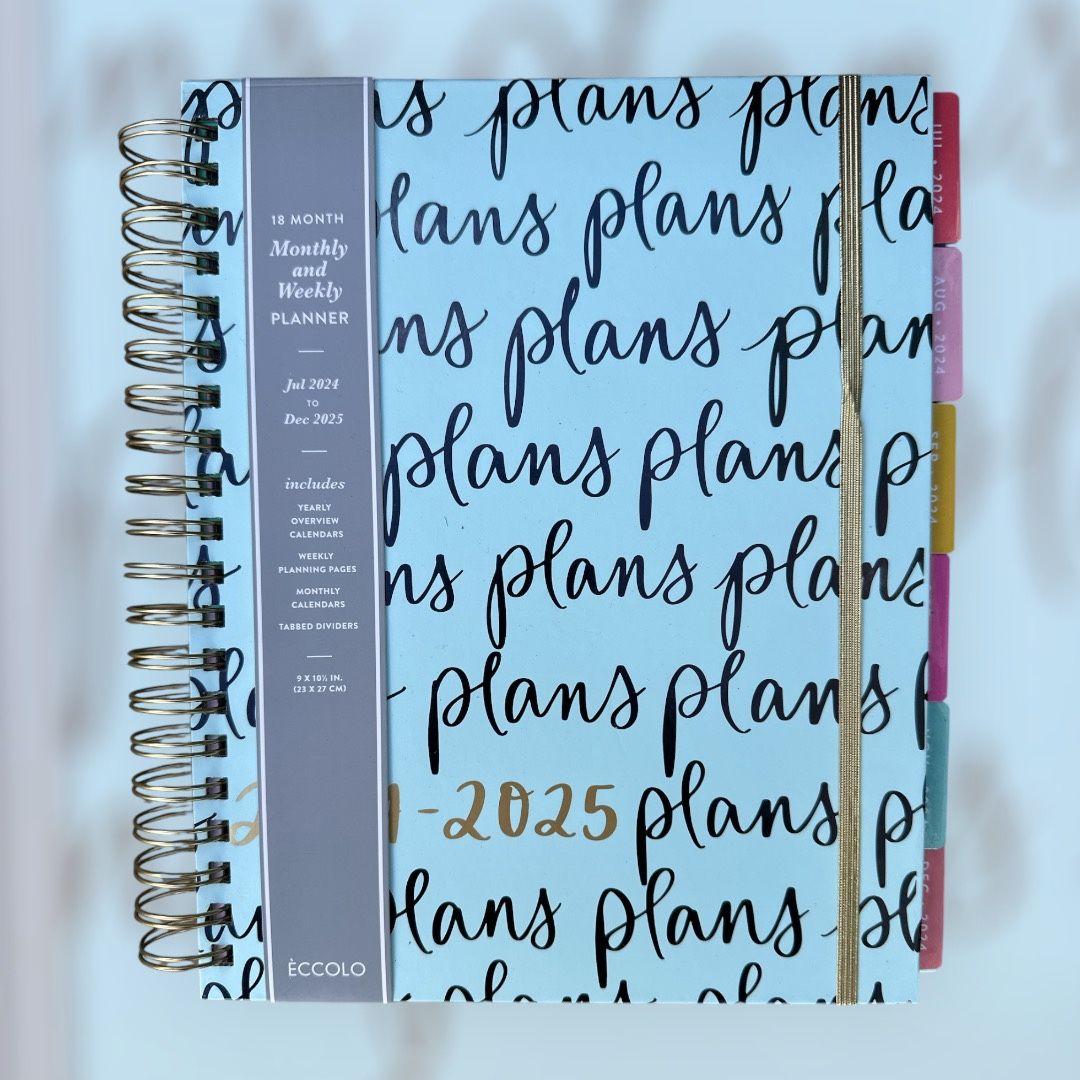 plans plans
18 MONTH
Monthly
and
Weekly
PLANNER
Jul 2024
TO
Dec 2025
includes
YEARLY
OVERVIEW
CALENDARS
WEEKLY
PLANNING PAGES
MONTHLY
CALENDARS
TABBED DIVIDERS
9 X 10½ IN.
(23 X 27 CM)
ÈCCOLO
plans
plans
plans plans
plans plans
plans plans
-2025 plans
plans
JUL • 2024
AUG • 2024
SEP • 2024
DEC • 2024